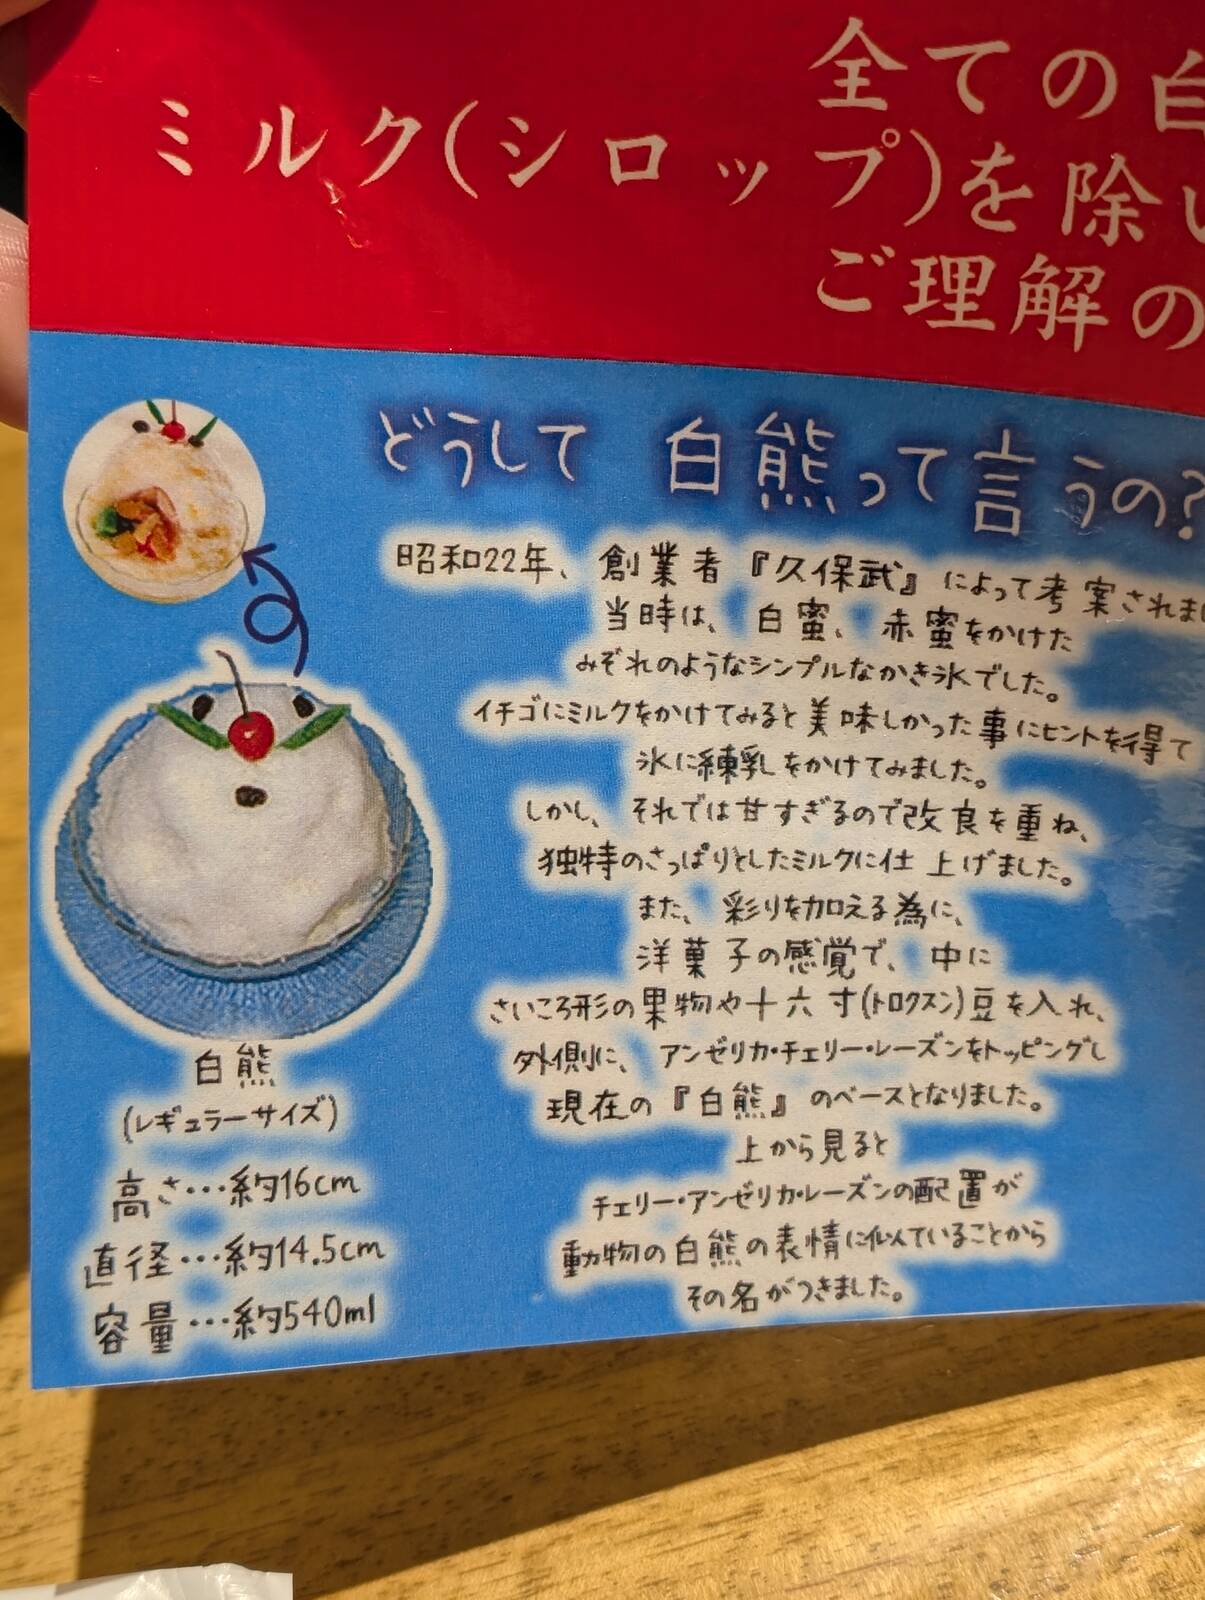 全ての白
ミルク(シロップ)を除い
ご理解の
どうして 白熊って言うの?
昭和22年、創業者『久保武』によって考案されまし
当時は、白蜜、赤蜜をかけた
みぞれのようなシンプルなかき氷でした。
イチゴにミルクをかけてみると美味しかった事にヒントを得て
氷に練乳をかけてみました。
しかし、それでは甘すぎるので改良を重ね、
独特のさっぱりとしたミルクに仕上げました。
また、彩りを加える為に、
洋菓子の感覚で、中に
さいころ形の果物や十六寸(トロクスン)豆を入れ、
外側に、アンゼリカ・チェリー・レーズンをトッピングし
現在の『白熊』のベースとなりました。
上から見ると
チェリー・アンゼリカ・レーズンの配置が
動物の白熊の表情に似ていることから
その名がつきました。
白熊
(レギュラーサイズ)
高さ…約16cm
直径…約14.5cm
容量…約540ml